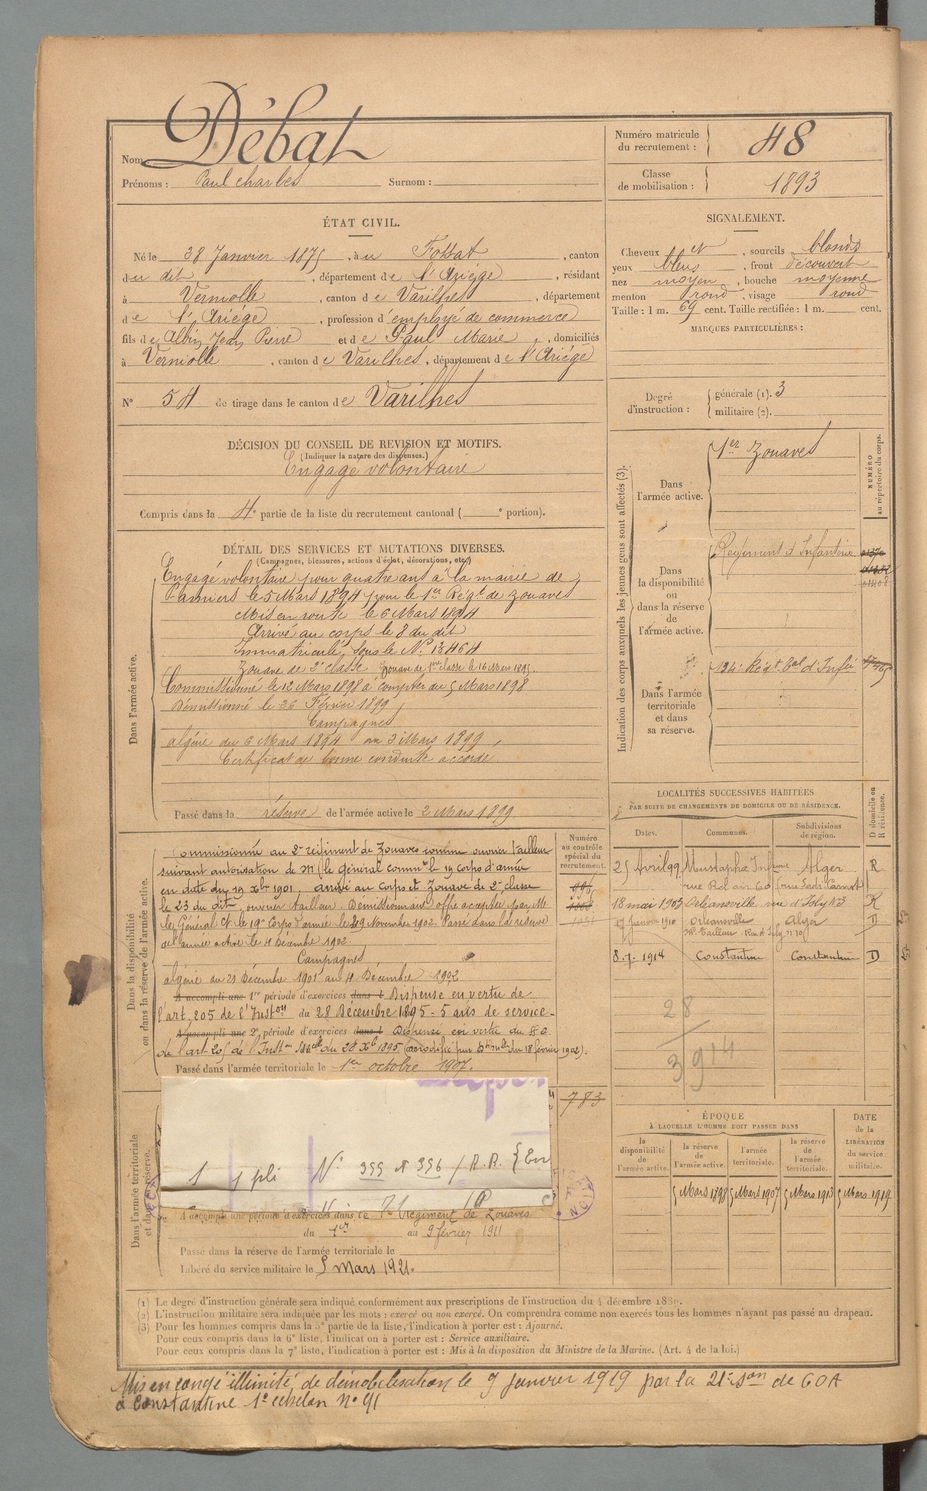 Nom Débat
Prénoms : Paul Charles Surnom :
Numéro matricule du recrutement : 48
Classe de mobilisation : 1893
ÉTAT CIVIL.
Né le 28 Janvier 1875, à u Fossat, canton
du dit, département de l'Ariège, résidant
à Verniolle, canton de Varilhes, département
de l'Ariège, profession d'employé de commerce
fils de Albin Jean Pierre et de Paul Marie, domiciliés
à Verniolle, canton de Varilhes, département de l'Ariège
N° 54 de tirage dans le canton de Varilhes
SIGNALEMENT.
Cheveux d°, sourcils blonds
yeux bleus, front découvert
nez moyen, bouche moyenne
menton rond, visage rond
Taille : 1 m. 69 cent. Taille rectifiée : 1 m. cent.
MARQUES PARTICULIÈRES :
Degré d'instruction : générale (1). 3
militaire (2).
DÉCISION DU CONSEIL DE REVISION ET MOTIFS.
(Indiquer la nature des dispenses.)
Engagé volontaire
Compris dans la 4e partie de la liste du recrutement cantonal ( e portion).
DÉTAIL DES SERVICES ET MUTATIONS DIVERSES.
(Campagnes, blessures, actions d'éclat, décorations, etc.)
Dans l'armée active.
Engagé volontaire pour quatre ans à la mairie de
Pamiers le 5 Mars 1894 pour le 1er Régt de Zouaves
Mis en route le 6 Mars 1894
Arrivé au corps le 8 du dit
Immatriculé sous le N° 13464
Zouave de 2e classe Zouave de 1ère classe le 16
Commissionné le 12 Mars 1898 à compter du 5 Mars 1898
Démissionné le 26 Février 1899
Campagnes
Algérie du 6 Mars 1894 au 3 Mars 1899
Certificat de bonne conduite accordé
Passé dans la réserve de l'armée active le 2 Mars 1899
Indication des corps auxquels les jeunes gens sont affectés (3).
NUMÉRO au répertoire du corps.
Dans l'armée active.
1er Zouaves
Dans la disponibilité ou dans la réserve de l'armée active.
Régiment d'Infanterie
Dans l'armée territoriale et dans sa réserve.
124e Régt tal d'Infie
LOCALITÉS SUCCESSIVES HABITÉES
PAR SUITE DE CHANGEMENTS DE DOMICILE OU DE RÉSIDENCE.
Dates. Communes. Subdivisions de région. D domicile ou R résidence.
25 Avril 99 Mustapha Inférieur Alger R
18 mai 1903 Orléansville rue d'Isly N°3 R
17 janvier 1910 Orléansville Alger D
8.7.1914 Constantine Constantine D
28
3914
Dans la disponibilité ou dans la réserve de l'armée active.
Numéro au contrôle spécial du recrutement.
Commissionné au 2e régiment de Zouaves comme ouvrier tailleur
suivant autorisation de Mr le général commt le 19 corps d'armée
en date du 19 xbre 1901, arrivé au corps et Zouave de 2e classe
le 23 du dit, ouvrier tailleur. Démissionnaire offre acceptée par M.
le Général Ct le 19e Corps d'armée le 29 Novembre 1902. Passé dans la réserve
de l'armée active le 11 Décembre 1902.
Campagnes
Algérie du 23 Décembre 1901 au 11 Décembre 1902
A accompli une 1re période d'exercices dans l Dispensé en vertu de
l'art. 205 de l'Inston du 28 Décembre 1895 - 5 ans de service -
A accompli une 2e période d'exercices dans l Dispensé en vertu du
de l'art 205 de l'Inston du 28 Xb 1895 (modifié par du 18 février 1902).
Passé dans l'armée territoriale le 1er octobre 1907.
783
Dans l'armée territoriale et dans sa réserve.
1 1 pli N° 395 et 396 / A.R. { En
A accompli une période d'exercices dans le 1er Régiment de Zouaves
du 1er au 9 février 1911
Passé dans la réserve de l'armée territoriale le
Libéré du service militaire le 5 Mars 1921.
ÉPOQUE
À LAQUELLE L'HOMME DOIT PASSER DANS
la disponibilité de l'armée active. la réserve de l'armée active. l'armée territoriale. la réserve de l'armée territoriale.
DATE de la LIBÉRATION du service militaire.
5 Mars 1898 5 Mars 1907 5 Mars 1913 5 Mars 1919
(1) Le degré d'instruction générale sera indiqué conformément aux prescriptions de l'instruction du 4 décembre 1889.
(2) L'instruction militaire sera indiquée par les mots : exercé ou non exercé. On comprendra comme non exercés tous les hommes n'ayant pas passé au drapeau.
(3) Pour les hommes compris dans la 5e partie de la liste, l'indication à porter est : Ajourné.
Pour ceux compris dans la 6e liste, l'indication à porter est : Service auxiliaire.
Pour ceux compris dans la 7e liste, l'indication à porter est : Mis à la disposition du Ministre de la Marine. (Art. 4 de la loi.)
Mis en congé illimité de démobilisation le 9 Janvier 1919 par la 21e Son de COA
à Constantine 1e echelon N° 91